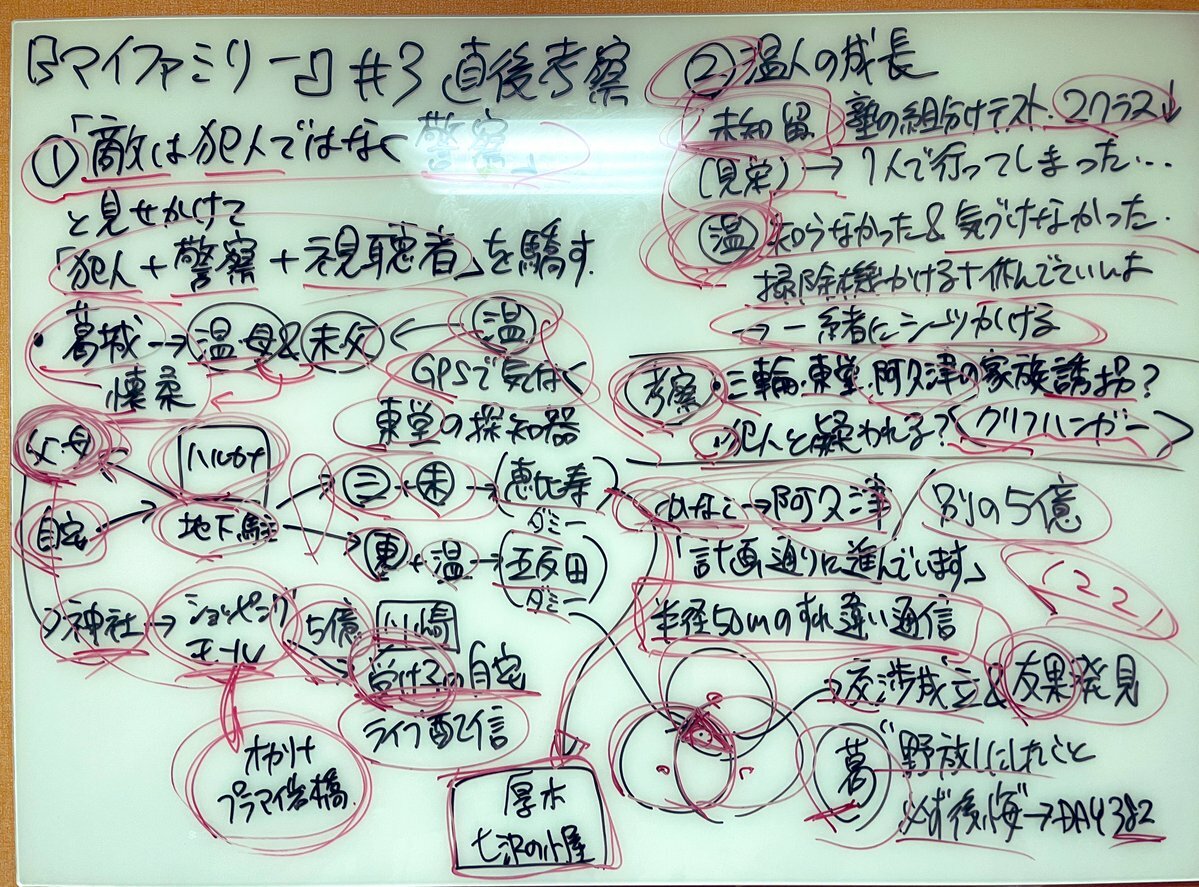 『マイファミリー』#3 直後考察
①「敵は犯人ではなく警察」
と見せかけて
「犯人+警察+視聴者」を騙す.
・葛城→温母&未父←温
懐柔
GPSで気づく
東堂の探知器
父・母
ハルカナ
三+未→(恵比寿)
ダミー
自宅
地下駐
東+温→(五反田)
ダミー
神社→ショッピングモール
5億
川崎
受け子の自宅
ライブ配信
オカリナ
プラマイ岩橋
厚木
七沢の小屋
②温人の成長
未知留 塾の組分けテスト.2クラス↓
(見栄)→1人で行ってしまった…
温 知らなかった&気づけなかった.
掃除機かける+休んでていいよ
→一緒にシーツかける
考察・三輪.東堂.阿久津の家族誘拐?
・犯人と疑われる?<クリフハンガー>
かなこ→阿久津/別の5億
「計画通りに進んでいます」
半径50mのすれ違い通信
→交渉成立&友果発見
葛「野放しにしたこと
必ず後悔→DAY382